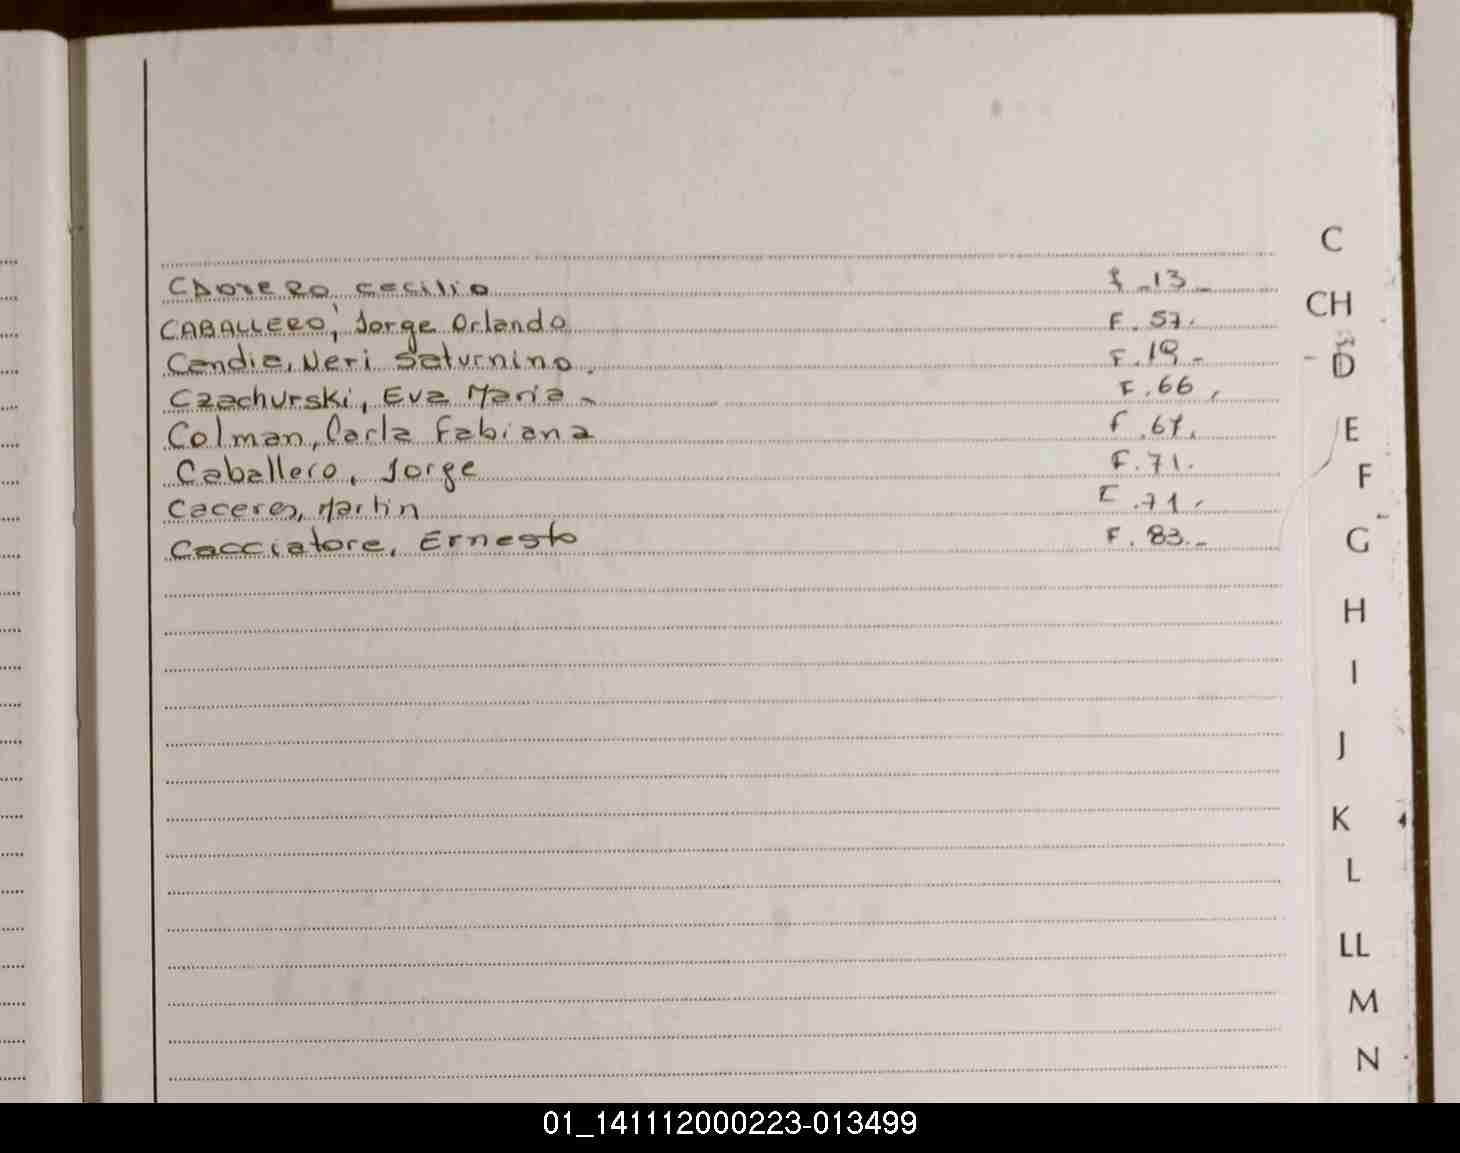 CAOVERO, Cecilio f. 13_
CABALLERO, Jorge Orlando F. 57.
Candia, Neri Saturnino. F. 19_
Czachurski, Eva Maria _ F. 66.
Colman, Carla Fabiana F. 67.
Caballero, Jorge F. 71.
Caceres, Martin F. 71.
Cacciatore, Ernesto F. 83._
C
CH
D
E
F
G
H
I
J
K
L
LL
M
N
01_141112000223-013499